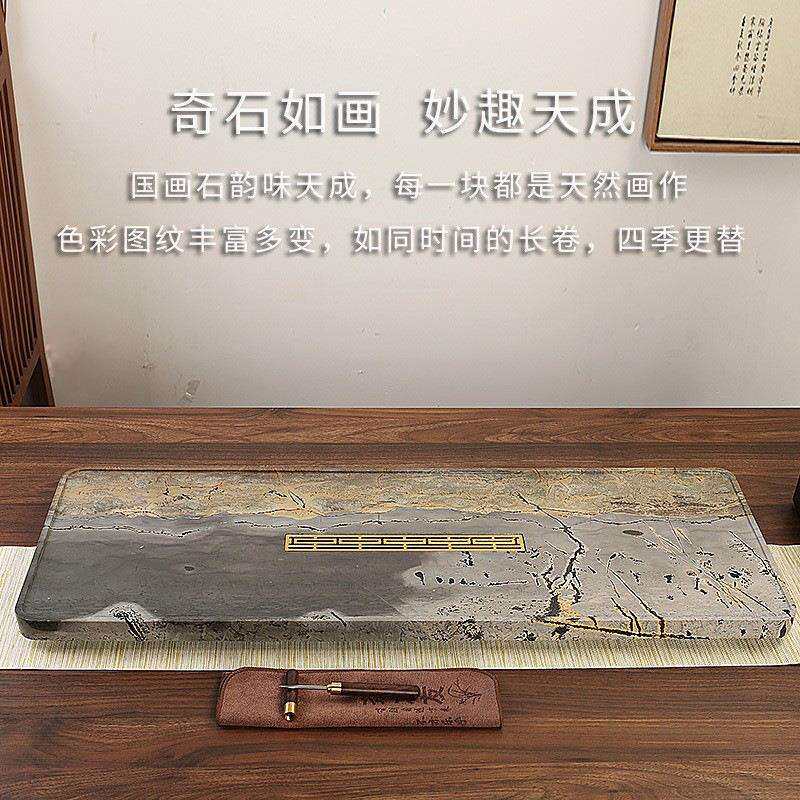 奇石如画 妙趣天成
国画石韵味天成，每一块都是天然画作
色彩图纹丰富多变，如同时间的长卷，四季更替